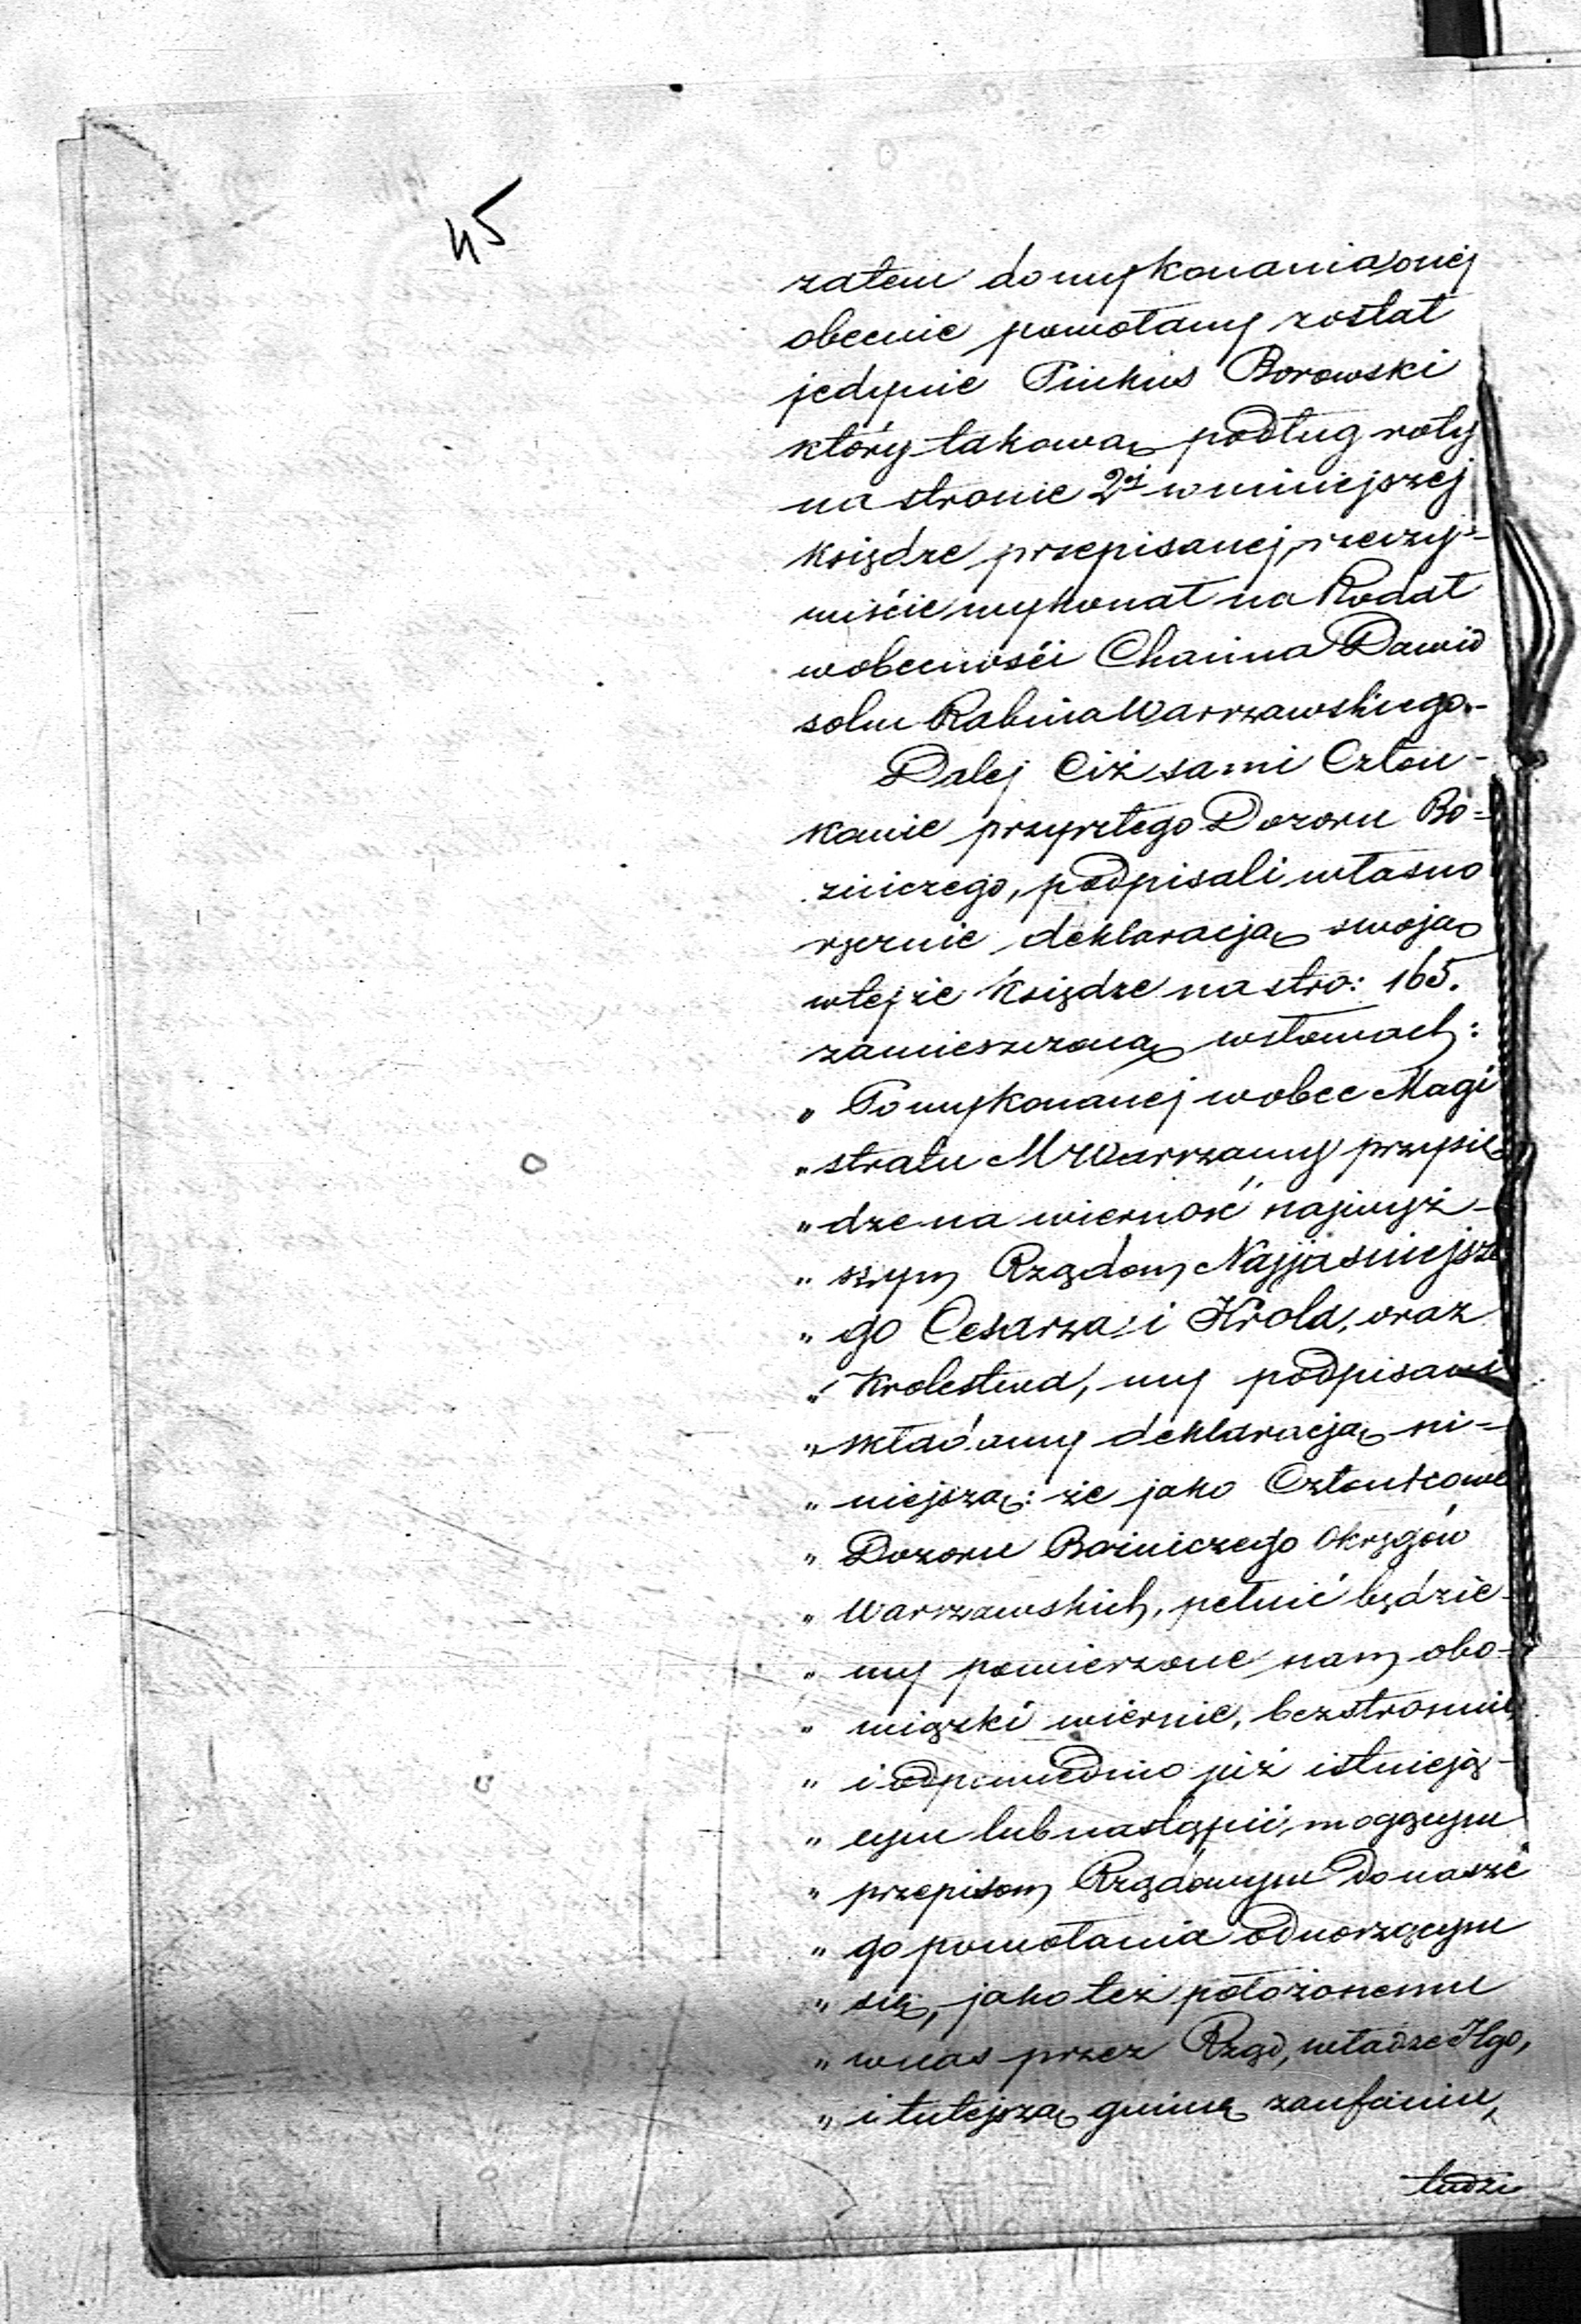 45
zatem do wykonania onej
obecnie powołany został
jedynie Pinkus Borowski
który takową podług roty
na stronie 2ej w niniejszej
księdze przepisanej, rzeczy=
wiście wykonał na Rodał
w obecności Chaima Dawid
sohn Rabina Warszawskiego.-
Dalej Ciż sami Człon-
kowie przyszłego Dozoru Bo=
żniczego, podpisali własno
ręcznie deklaracją swoją
w tejże księdze na stro: 165.
zamieszczoną w słowach:
„ Po wykonanej wobec Magi
„ stratu M Warszawy przysię
„ dze na wierność najwyż-
„ szym Rządom Najjasniejsze
„ go Cesarza i Krola, oraz
„ Krolestwa, my podpisani
„ składamy deklaracją ni-
„ niejszą: że jako Członkowie
„ Dozoru Bożniczego Okręgów
„ Warszawskich, pełnić będzie-
„ my powierzone nam obo-
„ wiązki wiernie, bezstronnie,
„ i odpowiednio już istnieją-
„ cym lub nastąpić mogącym
„ przepisom Rządowym do nasze
„ go powołania odnoszącym
„ się, jako też położonemu
„ w nas przez Rząd, władze
„ i tutejszą gminę zaufaniu,
tudzie